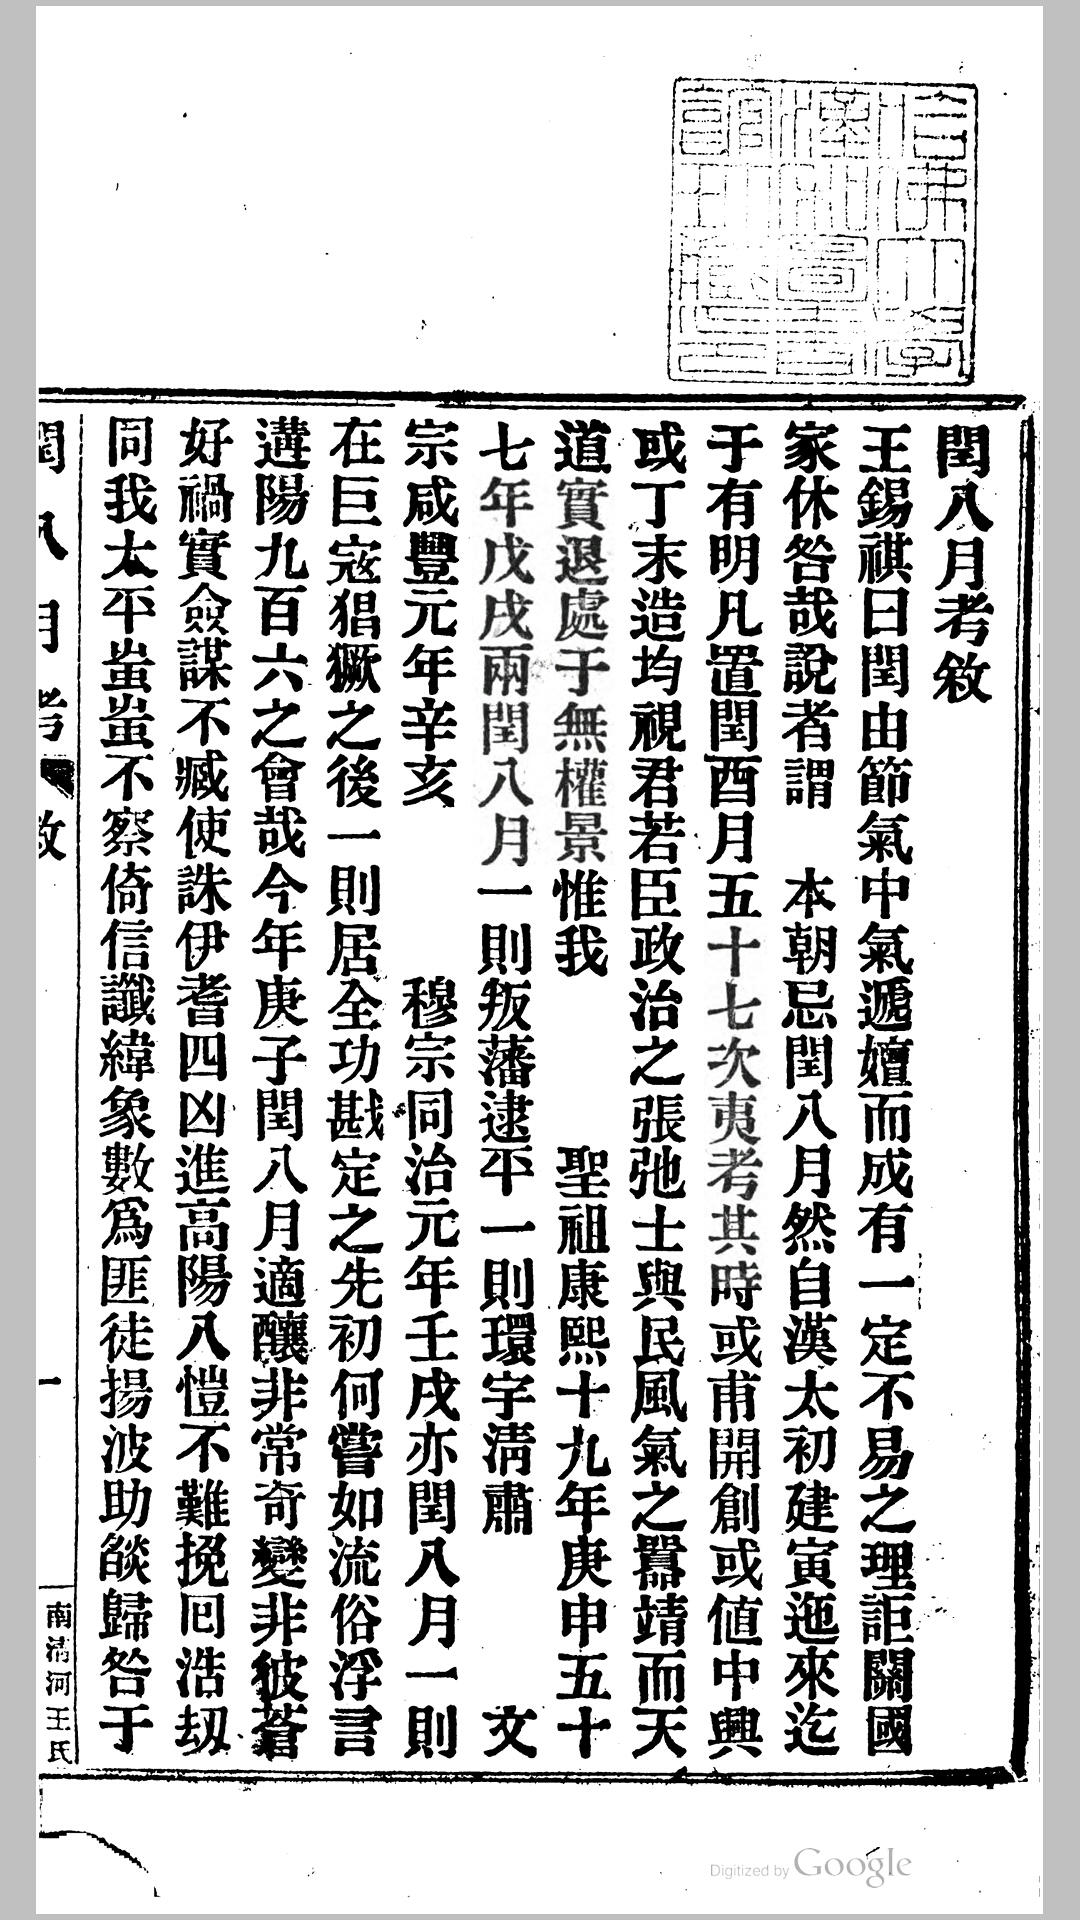 閏八月考敘
王錫祺曰閏由節氣中氣遞嬗而成有一定不易之理詎關國
家休咎哉說者謂　本朝忌閏八月然自漢太初建寅迤來迄
于有明凡置閏酉月五十七次夷考其時或甫開創或値中興
或丁末造均視君若臣政治之張弛士與民風氣之囂靖而天
道實退處于無權景惟我　　　聖祖康熙十九年庚申五十
七年戊戌兩閏八月一則叛藩逮平一則環宇淸肅　　　文
宗咸豐元年辛亥　　　穆宗同治元年壬戌亦閏八月一則
在巨寇猖獗之後一則居全功戡定之先初何嘗如流俗浮言
遘陽九百六之會哉今年庚子閏八月適釀非常奇變非彼蒼
好禍實僉謀不臧使誅伊耆四凶進高陽八愷不難挽囘浩刼
同我太平蚩蚩不察倚信讖緯象數爲匪徒揚波助燄歸咎于
閏八月考
敘
一
南清河王氏
Digitized by Google